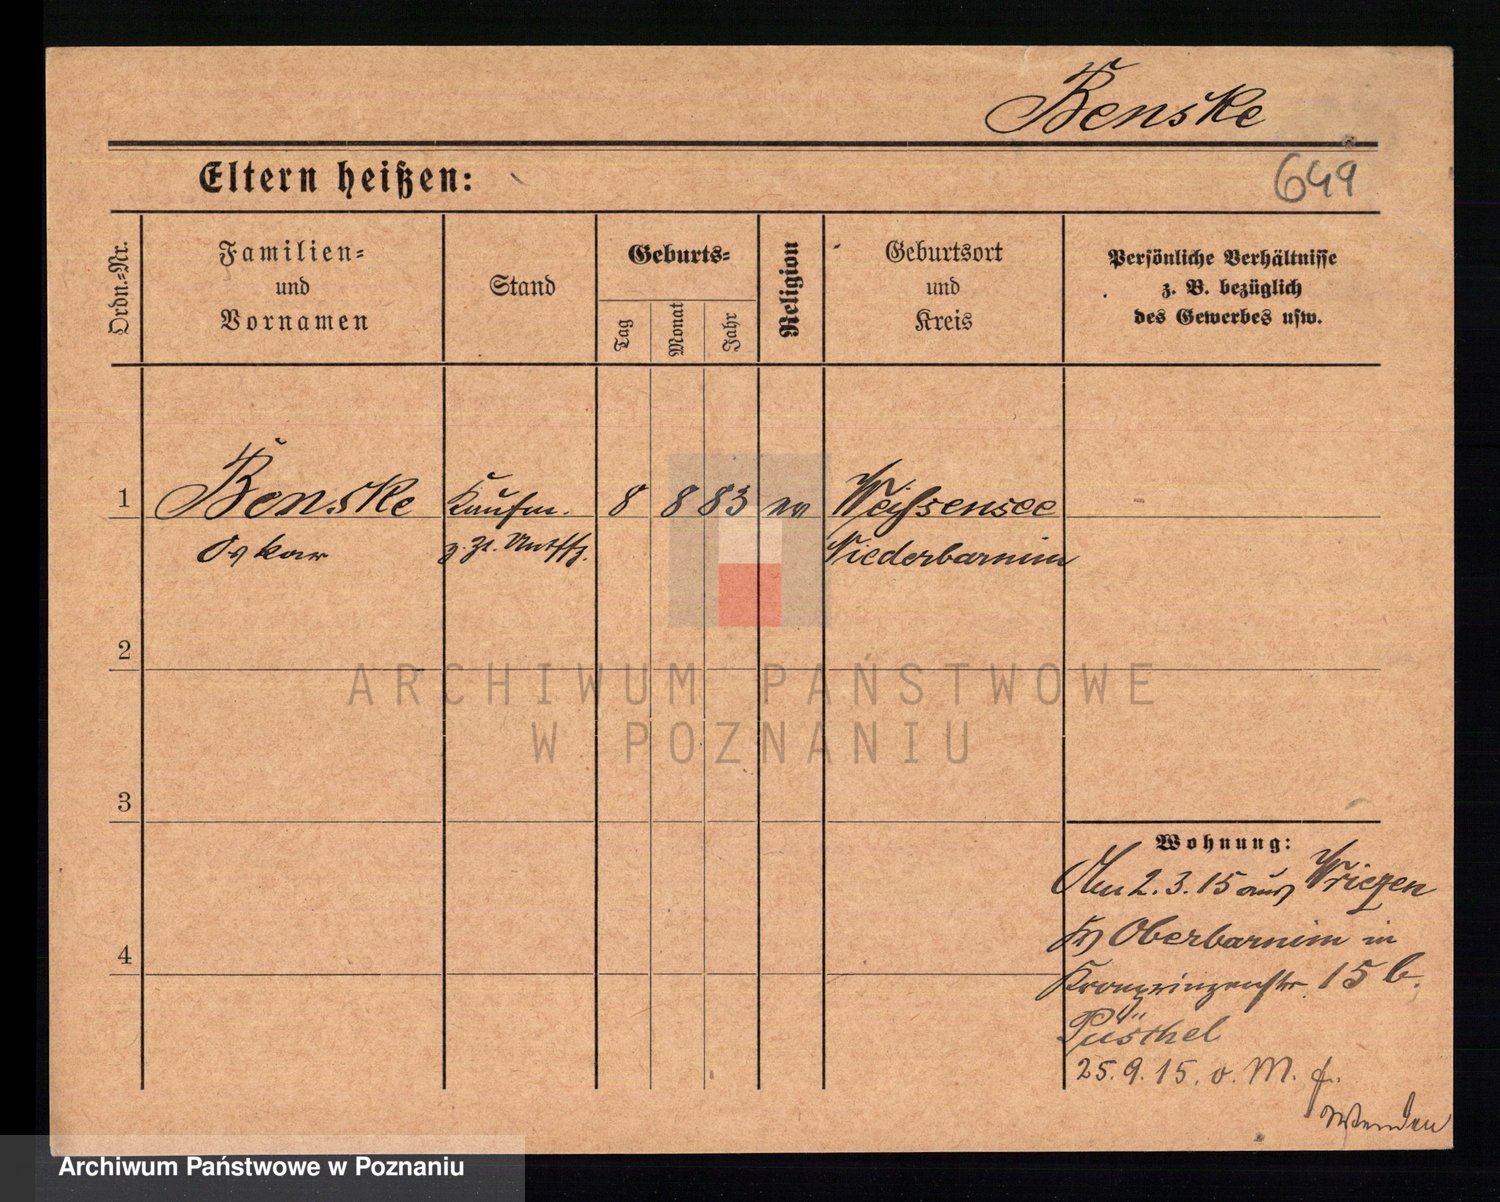 Benske
Eltern heißen:
649
Ordn.=Nr.
Familien=
und
Vornamen
Stand
Geburts=
Tag
Monat
Jahr
Religion
Geburtsort
und
Kreis
Persönliche Verhältnisse
z. B. bezüglich
des Gewerbes usw.
1
Benske
Kaufm.
8
8
83
ev
Weißensee
Oskar
z. Zt. Untffz.
Niederbarnim
2
ARCHIWUM PAŃSTWOWE
W POZNANIU
3
Wohnung:
Am 2.3.15 aus Wriezen
Krs Oberbarnim in
Kronprinzenstr. 15 b.
Püschel
25.9.15. v. M. f.
Wenden
4
Archiwum Państwowe w Poznaniu